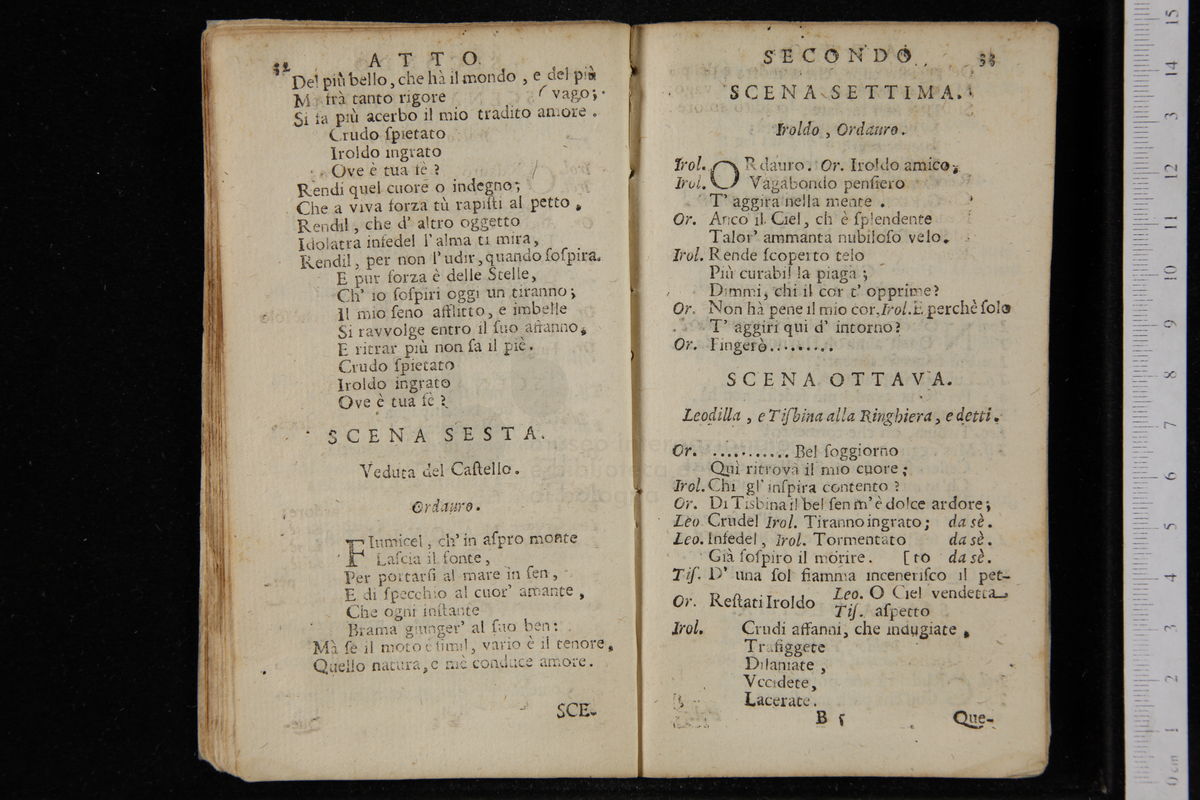 32 ATTO.
Del più bello, che hà il mondo, e del più
Ma frà tanto rigore (vago;
Si fa più acerbo il mio tradito amore.
Crudo spietato
Iroldo ingrato
Ove è tua fè?
Rendi quel cuore o indegno;
Che a viva forza tù rapisti al petto,
Rendil, che d' altro oggetto
Idolatra infedel l'alma ti mira,
Rendil, per non l'udir, quando sospira.
E pur forza è delle Stelle,
Ch' io sospiri oggi un tiranno;
Il mio seno afflitto, e imbelle
Si ravvolge entro il suo affanno,
E ritrar più non sa il piè.
Crudo spietato
Iroldo ingrato
Ove è tua fè?
SCENA SESTA.
Veduta del Castello.
Ordauro.
FIumicel, ch' in aspro monte
Lascia il fonte,
Per portarsi al mare in sen,
E di specchio al cuor' amante,
Che ogni instante
Brama giunger' al suo ben:
Mà se il moto è simil, vario è il tenore,
Quello natura, e mè conduce amore.
SCE-
SECONDO. 33
SCENA SETTIMA.
Iroldo, Ordauro.
Irol. ORdauro. Or. Iroldo amico;
Irol. Vagabondo pensiero
T' aggira nella mente.
Or. Anco il Ciel, ch è splendente
Talor' ammanta nubiloso velo.
Irol. Rende scoperto telo
Più curabil la piaga;
Dimmi, chi il cor t' opprime?
Or. Non hà pene il mio cor. Irol. E perchè solo
T' aggiri qui d' intorno?
Or. Fingerò.........
SCENA OTTAVA.
Leodilla, e Tisbina alla Ringhiera, e detti.
Or. ........... Bel soggiorno
Qui ritrova il mio cuore;
Irol. Chi gl' inspira contento?
Or. Di Tisbina il bel sen m'è dolce ardore;
Leo Crudel Irol. Tiranno ingrato; da sè.
Leo. Infedel, Irol. Tormentato da sè.
Già sospiro il morire. [to da sè.
Tis. D' una sol fiamma incenerisco il pet-
Or. Restati Iroldo Leo. O Ciel vendetta
Tis. aspetto
Irol. Crudi affanni, che indugiate,
Trafiggete
Dilaniate,
Vccidete,
Lacerate.
B 5 Que-